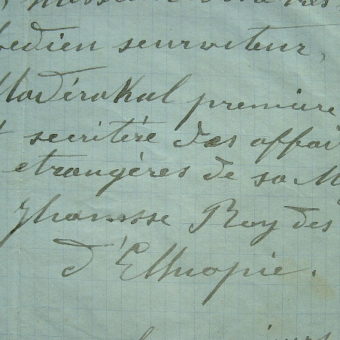 obedien seurviteur,
Madérakal première
secritére des affai
etrangéres de sa M
Jhamsse Roy des
d'Ethiopie.